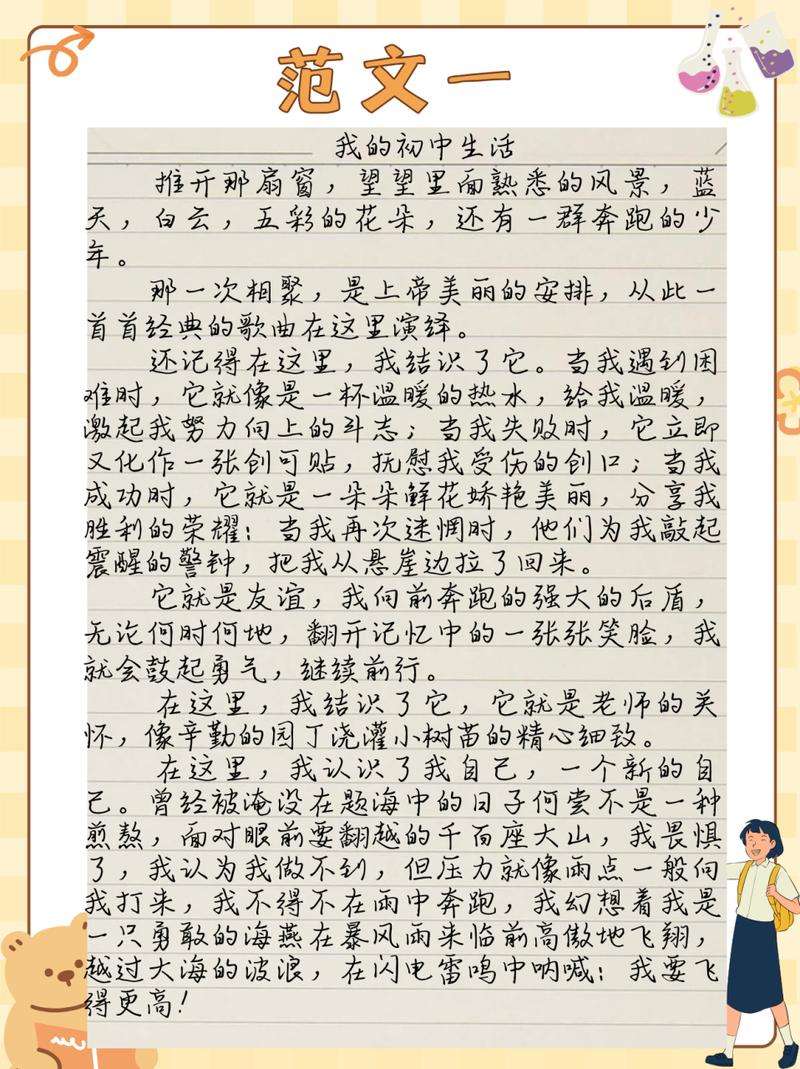 范文一
我的初中生活
推开那扇窗，望望里面熟悉的风景，蓝
天，白云，五彩的花朵，还有一群奔跑的少
年。
那一次相聚，是上帝美丽的安排，从此一
首首经典的歌曲在这里演绎。
还记得在这里，我结识了它。当我遇到困
难时，它就像是一杯温暖的热水，给我温暖，
激起我努力向上的斗志；当我失败时，它立即
又化作一张创可贴，抚慰我受伤的创口；当我
成功时，它就是一朵朵鲜花娇艳美丽，分享我
胜利的荣耀；当我再次迷惘时，他们为我敲起
震醒的警钟，把我从悬崖边拉了回来。
它就是友谊，我向前奔跑的强大的后盾，
无论何时何地，翻开记忆中的一张张笑脸，我
就会鼓起勇气，继续前行。
在这里，我结识了它，它就是老师的关
怀，像辛勤的园丁浇灌小树苗的精心细致。
在这里，我认识了我自己，一个新的自
己。曾经被淹没在题海中的日子何尝不是一种
煎熬，面对眼前要翻越的千百座大山，我畏惧
了，我认为我做不到，但压力就像雨点一般向
我打来，我不得不在雨中奔跑，我幻想着我是
一只勇敢的海燕在暴风雨来临前高傲地飞翔，
越过大海的波浪，在闪电雷鸣中呐喊：我要飞
得更高！